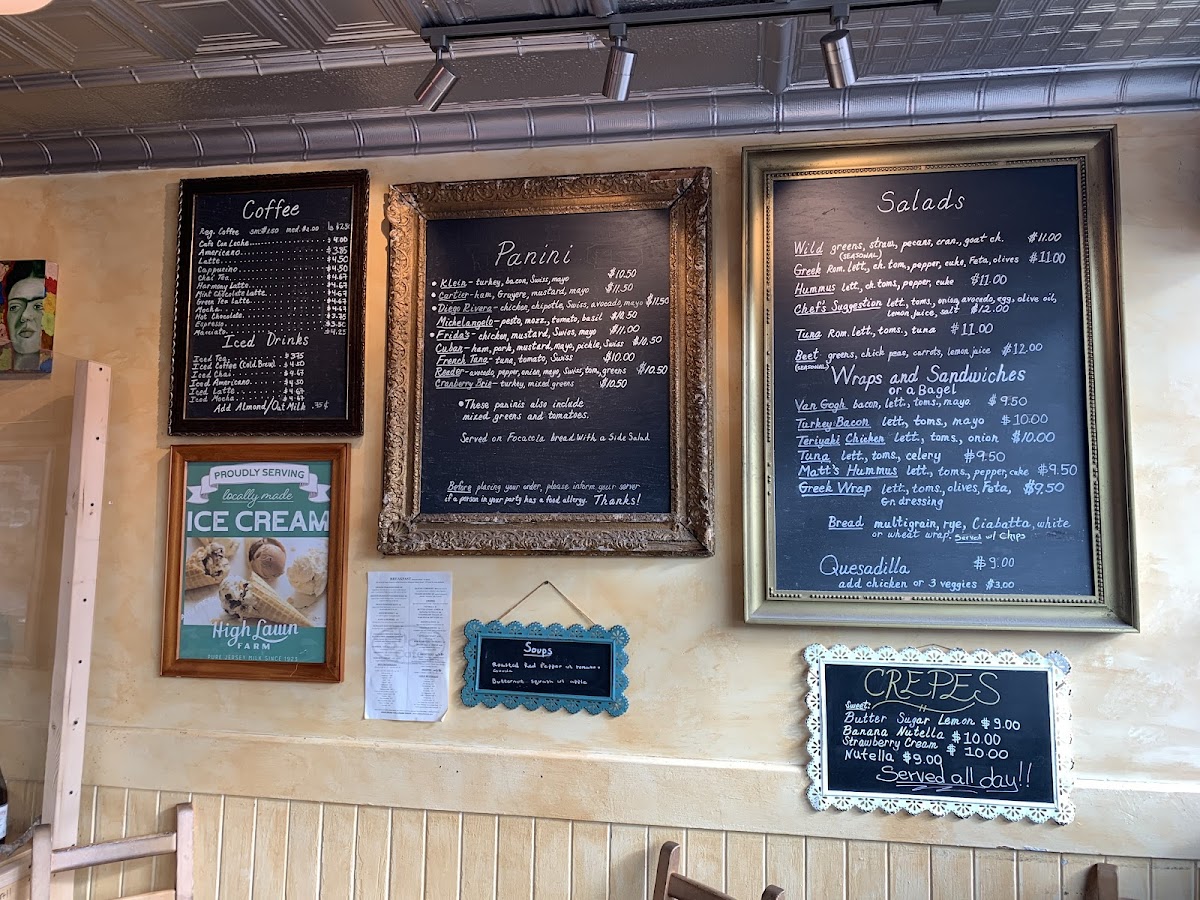 Coffee
Reg. Coffee sm. $2.00 med. $2.00 lg $2.50
Cafe Con Leche $4.00
Americano $3.85
Latte $4.50
Cappucino $4.50
Chai Tea $4.67
Harmony Latte $4.67
Mint Chocolate Latte $4.67
Green Tea Latte $4.67
Mocha $4.67
Hot Chocolate $3.75
Espresso $3.50
Macciato $4.25
Iced Drinks
Iced Tea $3.75
Iced Coffee (Cold Brew) $4.50
Iced Chai $4.67
Iced Americano $4.50
Iced Latte $4.67
Iced Mocha $4.67
Add Almond/Oat Milk .95¢
PROUDLY SERVING
locally made
ICE CREAM
High Lawn
FARM
PURE JERSEY MILK SINCE 1923
Panini
Klein - turkey, bacon, Swiss, mayo $10.50
Cartier - ham, Gruyere, mustard, mayo $11.50
Diego Rivera - chicken, chipotle, Swiss, avocado, mayo $11.50
Michelangelo - pesto, mozz., tomato, basil $10.50
Frida's - chicken, mustard, Swies, mayo $11.00
Cuban - ham, pork, mustard, mayo, pickle, Swiss $11.50
French Tuna - tuna, tomato, Swiss $10.00
Reeder - avocado, pepper, onion, mayo, Swiss, tom., greens $10.50
Cranberry Brie - turkey, mixed greens $10.50
• These paninis also include
mixed greens and tomatoes.
Served on Focaccia bread With a Side Salad
Before placing your order, please inform your server
if a person in your party has a food allergy. Thanks!
BREAKFAST
Soups
Roasted Red Pepper w/ tomato +
Butternut squash w/ apple
Salads
Wild greens, straw, pecans, cran., goat ch. $11.00
(SEASONAL)
Greek Rom. lett., ch. tom., pepper, cuke, Feta, olives $11.00
Hummus lett, ch. toms, pepper, cuke $11.00
Chef's Suggestion lett., toms., onion, avocado, egg, olive oil,
lemon juice, salt $12.00
Tuna Rom. lett., toms., tuna $11.00
Beet greens, chick peas, carrots, lemon juice $12.00
(SEASONAL)
Wraps and Sandwiches
or a Bagel
Van Gogh bacon, lett., toms., mayo $9.50
Turkey Bacon lett, toms., mayo $10.00
Teriyaki Chicken lett., toms., onion $10.00
Tuna lett., toms, celery $9.50
Matt's Hummus lett., toms., pepper, cuke $9.50
Greek Wrap lett., toms., olives, Feta, $9.50
Gr. dressing
Bread multigrain, rye, Ciabatta, white
or wheat wrap. Served w/ chips
Quesadilla $9.00
add chicken or 3 veggies $3.00
CREPES
Sweet:
Butter Sugar Lemon $9.00
Banana Nutella $10.00
Strawberry Cream $10.00
Nutella $9.00
Served all day!!